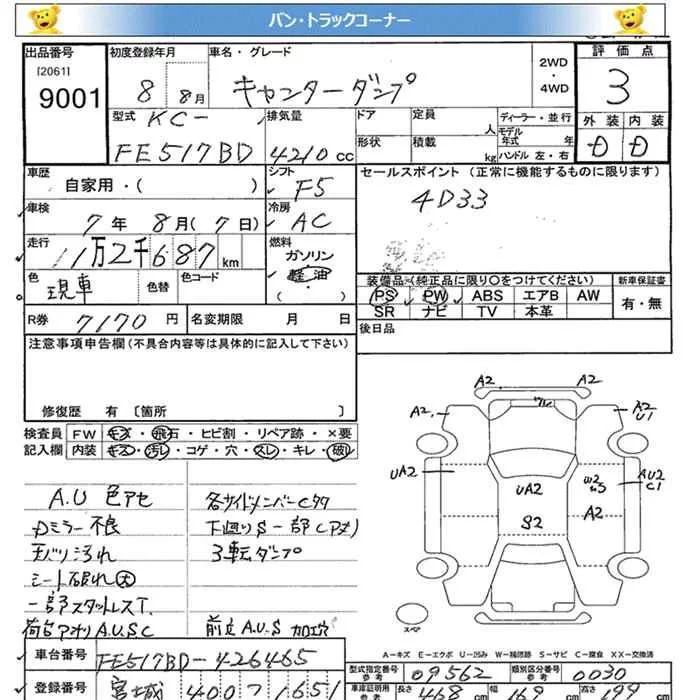 バン・トラックコーナー
出品番号
[2061]
9001
初度登録年月
8 8月
車名・グレード
キャンターダンプ
2WD
・
4WD
評価点
3
外装 内装
D D
型式
KC-
FE517BD
排気量
4210 cc
ドア
定員
人
形状
積載
kg
ディーラー・並行
モデル年式 年
ハンドル 左・右
車歴
自家用・( )
シフト
F5
車検
7年 8月(7日)
冷房
AC
走行
11万2千687 km
燃料
ガソリン
軽油
( )
色
現車
色替
色コード
R券 7170 円
名変期限 月 日
セールスポイント (正常に機能するものに限ります)
4D33
装備品 (純正品に限り○をつけてください)
PS PW ABS エアB AW
SR ナビ TV 本革
新車保証書
有・無
後日品
注意事項申告欄(不具合内容等は具体的に記入して下さい)
修復歴 有 〔箇所 〕
検査員 FW キズ・飛石・ヒビ割・リペア跡・×要
記入欄 内装 キズ・汚レ・コゲ・穴・スレ・キレ・破レ
A.U 色アセ
Dミラー不良
シート破れ 大
一部スタットレスT.
荷台アオリA.U.S.C
各サイドメンバーCタタ
下廻りS一部C(アオリ)
3転ダンプ
前立A.U.S 加工穴
A2 A2
A2 ワレ A2
U1
UA2 UA2 AU2
C1
W2
A2
S2
スペア
A-キズ E-エクボ U-凹み W-補修跡 S-サビ C-腐食 XX-交換済
車台番号 FE517BD-426465
登録番号 宮城 400 1651
型式指定番号 参考 09562
類別区分番号 参考 0030
車庫証明用 参考 長さ 468 cm 幅 169 cm 高さ 199 cm